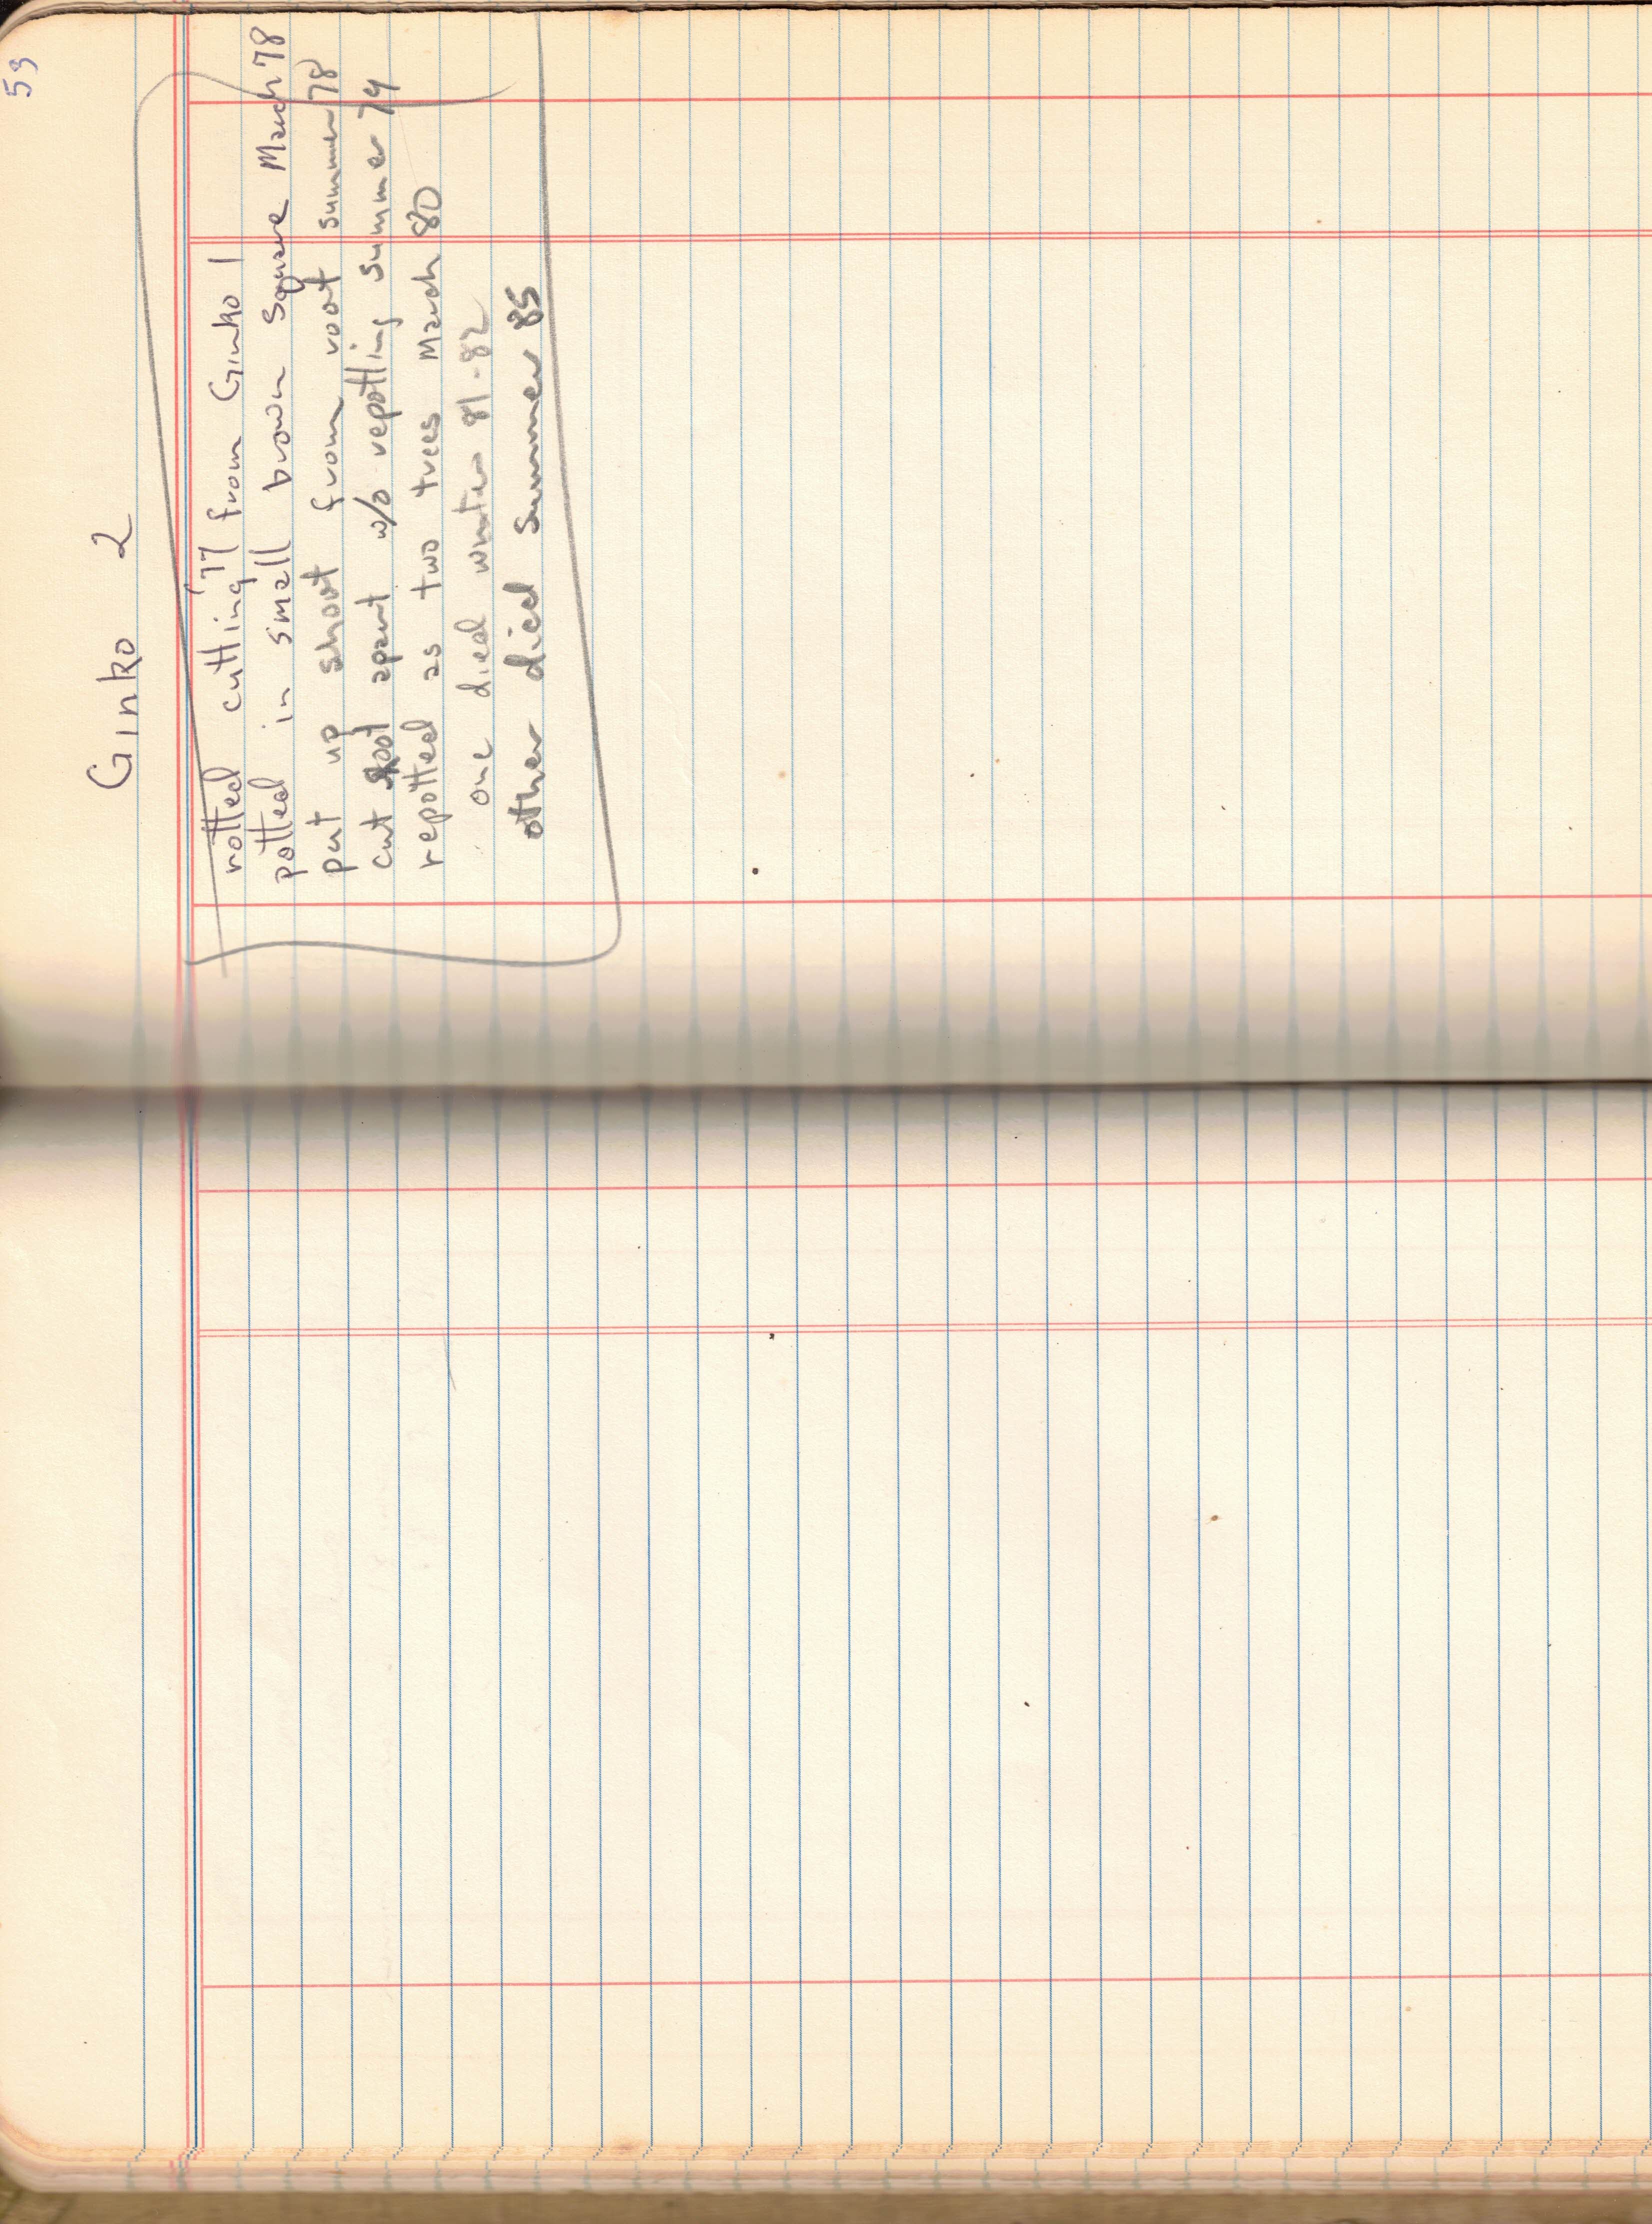 53
Ginko 2
rotted cutting '77 from Ginko 1
potted in small brown square March 78
put up shoot from root summer 78
cut root apart w/o repotting summer 79
repotted as two trees March 80
one died winter 81-82
other died summer 85